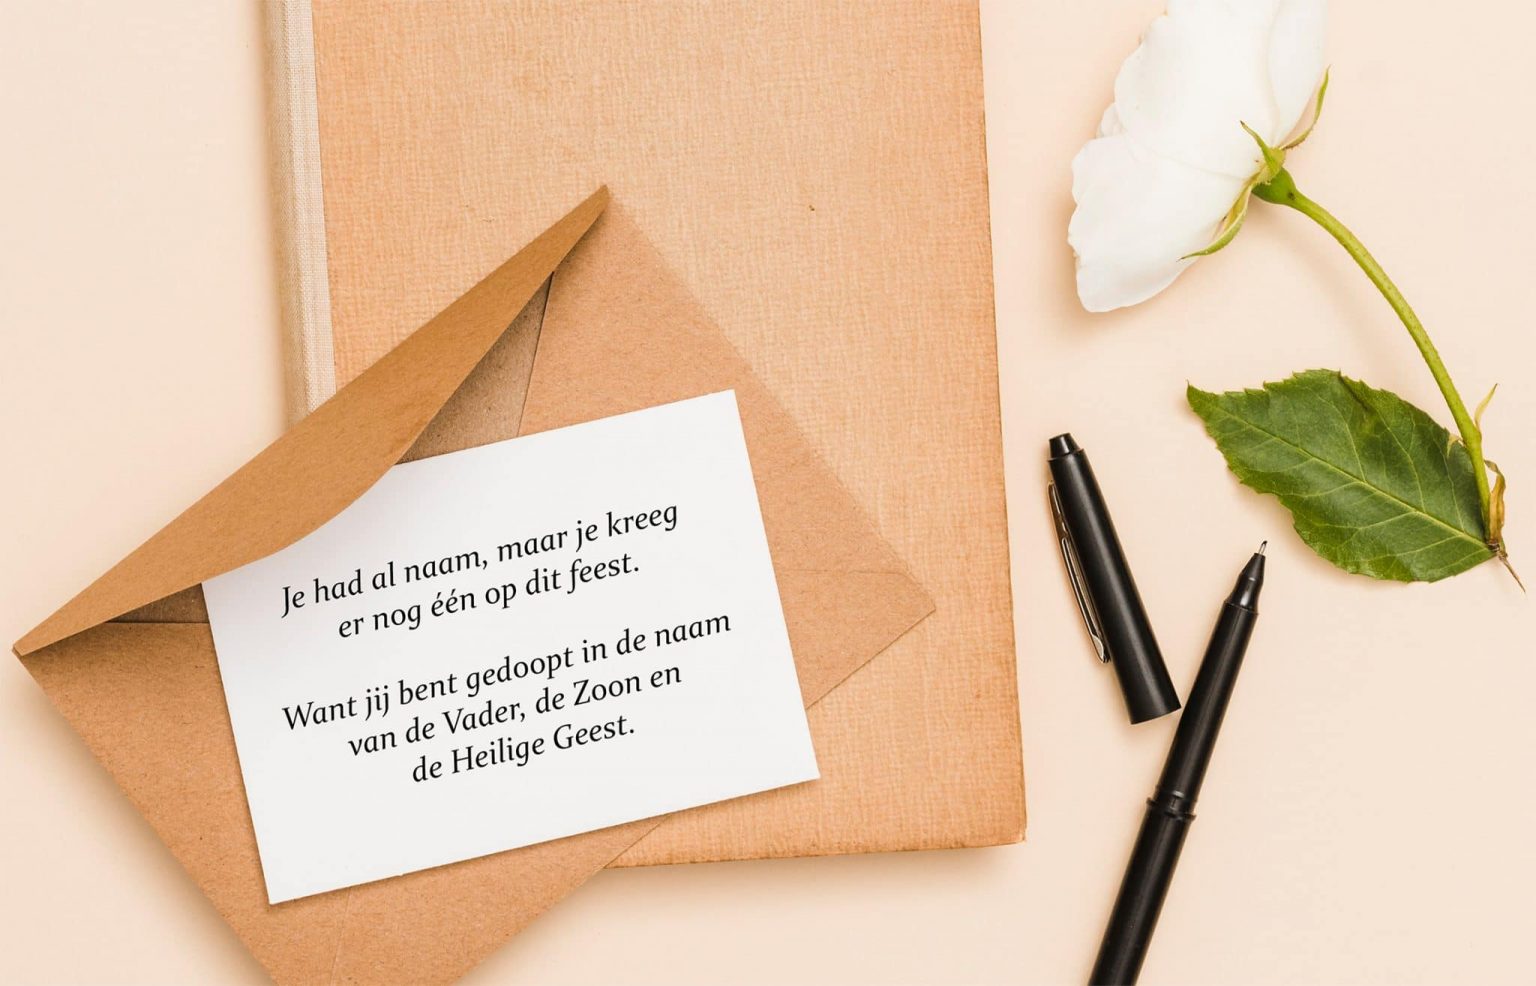 Je had al naam, maar je kreeg
er nog één op dit feest.
Want jij bent gedoopt in de naam
van de Vader, de Zoon en
de Heilige Geest.